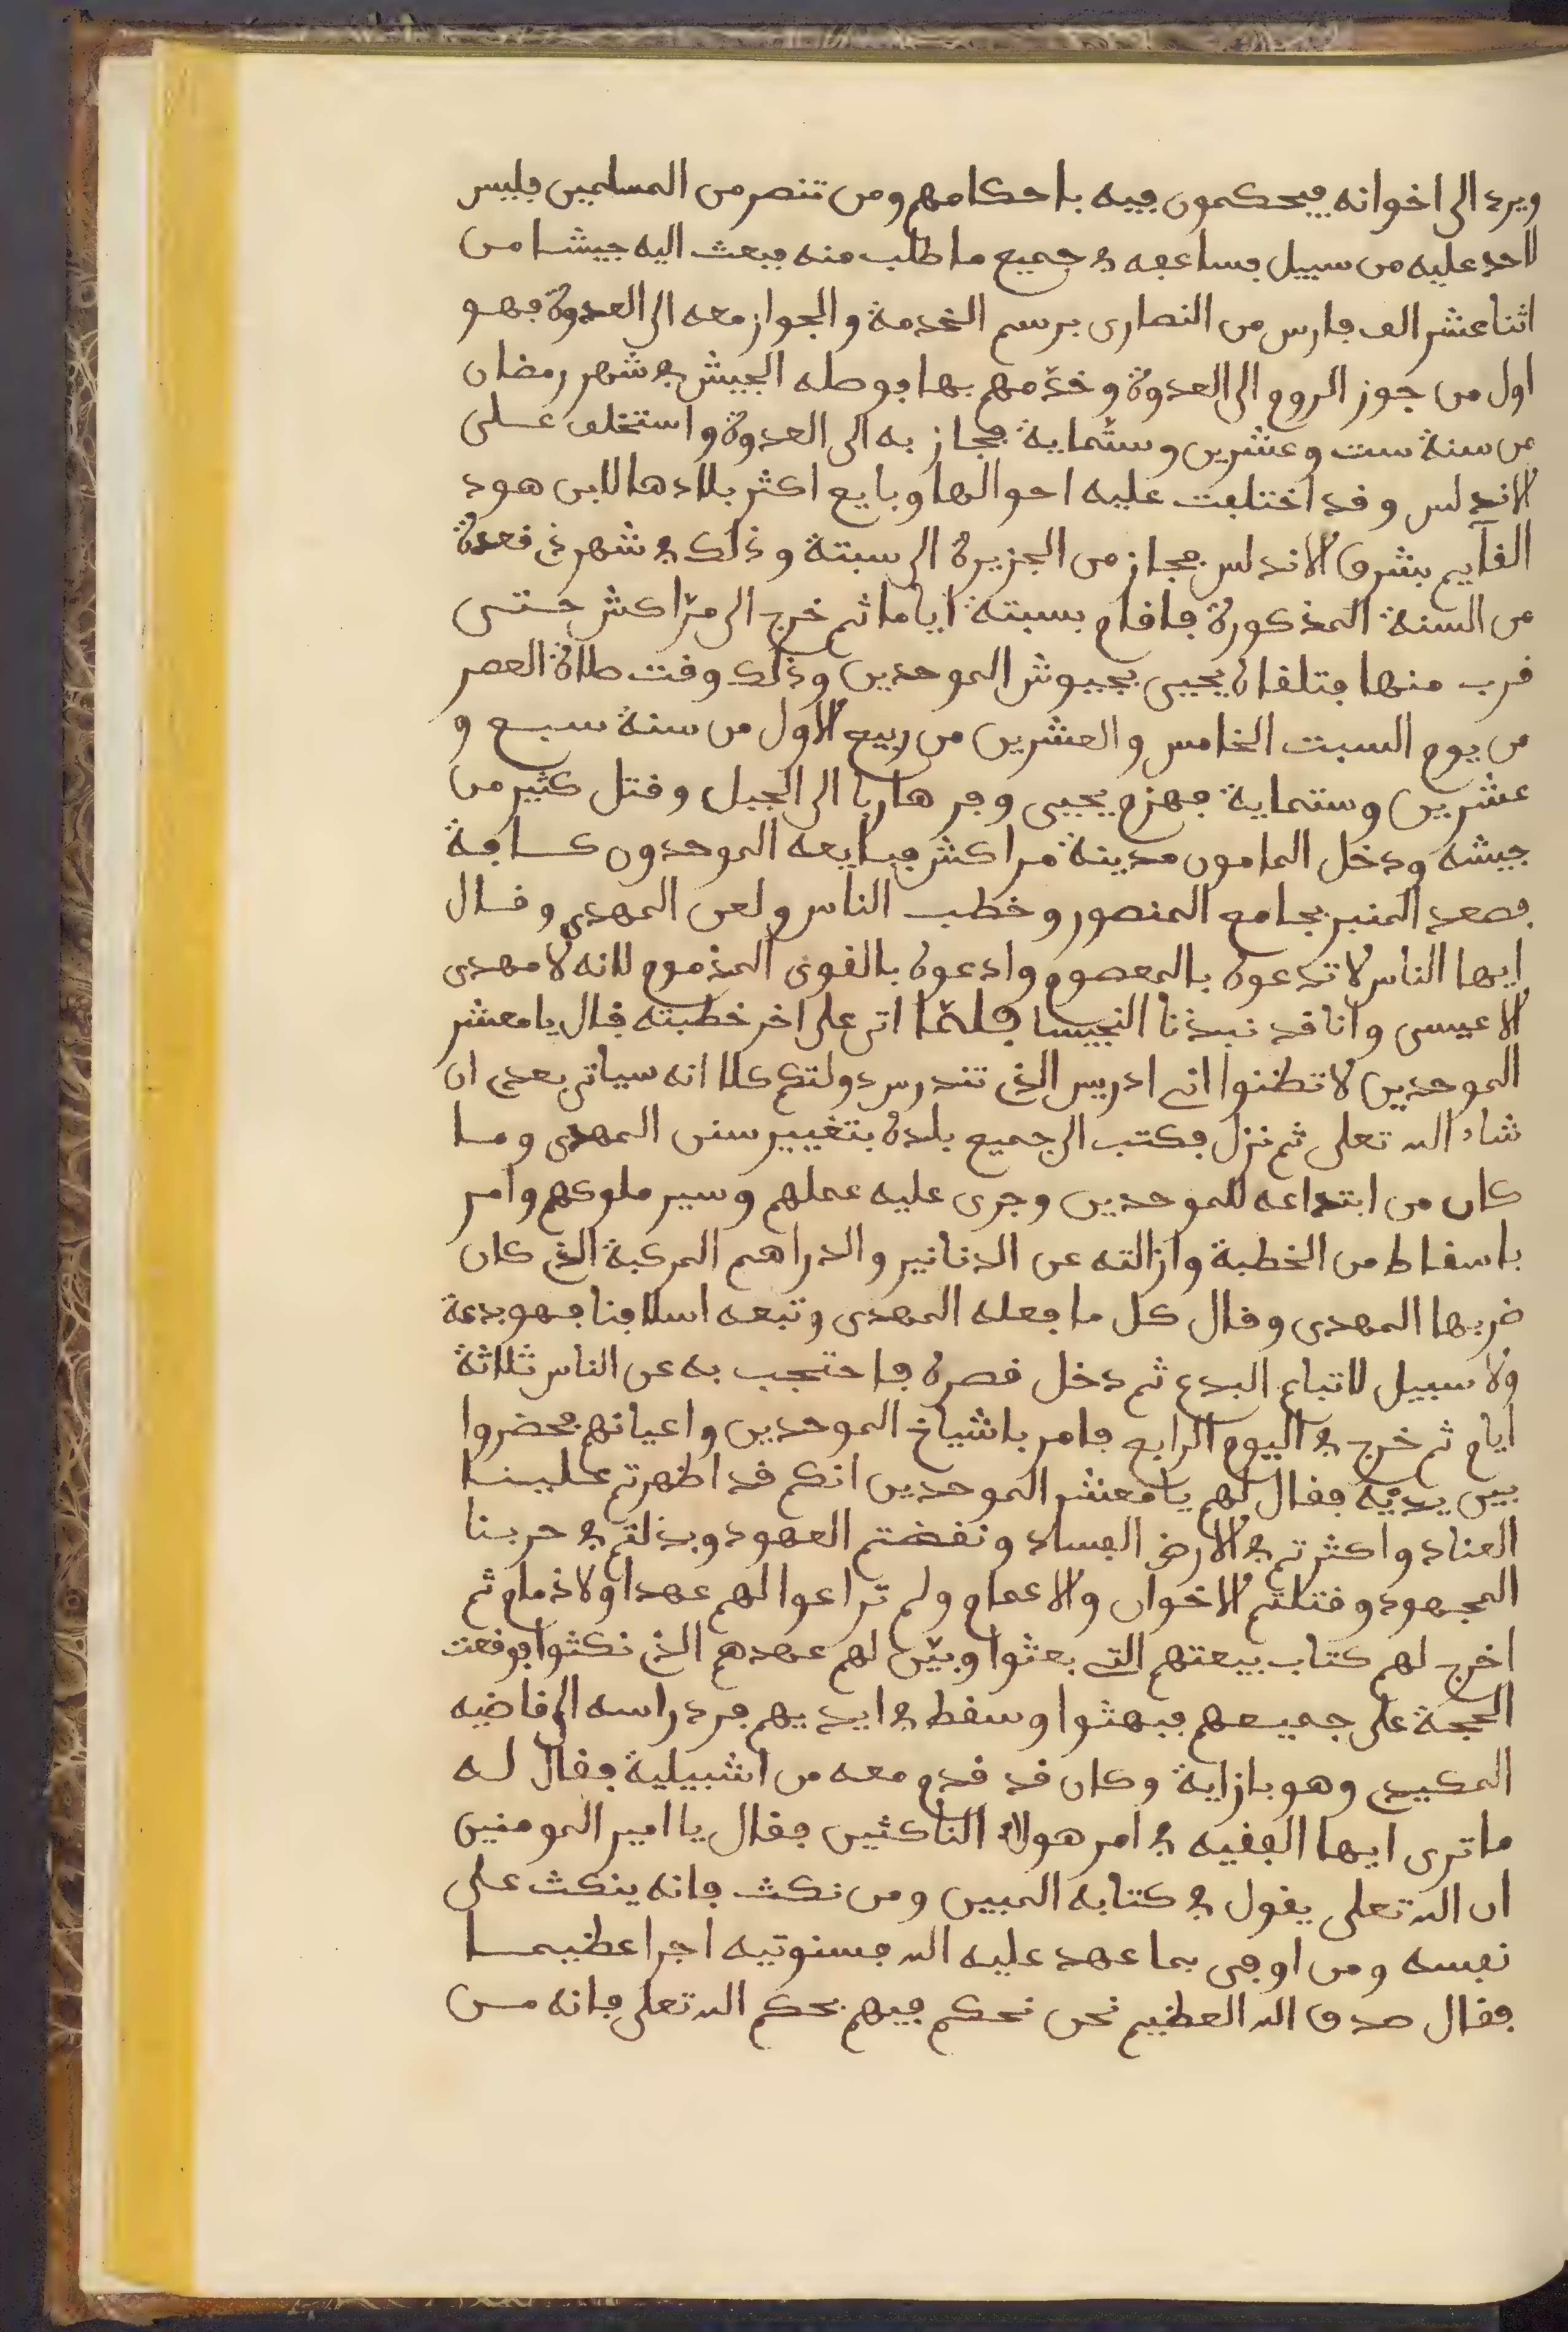 ويرد الى اخوانه فيحكمون فيه باحكامهم ومن تنصر من المسلمين فليس
لاحد عليه من سبيل فساعفه في جميع ما طلب منه فبعث اليه جيشا من
اثنا عشر الف فارس من النصارى برسم الخدمة والجواز معه الى العدوة فهو
اول من جوز الروم الى العدوة وخدّمهم بها فوصله الجيش في شهر رمضان
من سنة ست وعشرين وستّماية فجاز به الى العدوة واستخلف على
الاندلس وقد اختلفت عليه احوالها وبايع اكثر بلادها لابن هود
القآيم بشرق الاندلس فجاز من الجزيرة الى سبتة وذلك في شهر ذي قعدة
من السنة المذكورة فاقام بسبتة اياما ثم خرج الى مرّاكش حتى
قرب منها فتلقاه يحيى بجيوش الموحدين وذلك وقت صلاة العصر
من يوم السبت الخامس والعشرين من ربيع الاول من سنة سبع و
عشرين وستماية فهزم يحيى وفر هاربا الى الجبل وقتل كثير من
جيشه ودخل المامون مدينة مراكش فبايعه الموحدون كافة
فصعد المنبر بجامع المنصور وخطب الناس ولعن المهدي وقال
ايها الناس لا تدعوه بالمعصوم وادعوه بالغوى المذموم لانه لا مهدى
الا عيسى وانا قد نبذنا النجيسا فلمّا اتى على اخر خطبته قال يا معشر
الموحدين لا تظنوا انى ادريس الذى تندرس دولتكم كلا انه سياتى بعدى ان
شاء الله تعلى ثم نزل فكتب الى جميع بلده بتغيير سنن المهدى وما
كان من ابتداعه للموحدين وجرى عليه عملهم وسير ملوكهم وامر
باسقاط من الخطبة وازالته عن الدنانير والدراهم المركبة الذى كان
ضربها المهدى وقال كل ما فعله المهدى وتبعه اسلافنا فهو بدعة
ولا سبيل لاتباع البدع ثم دخل قصره فاحتجب به عن الناس ثلاثة
ايام ثم خرج في اليوم الرابع فامر باشياخ الموحدين واعيانهم فحضروا
بين يديه فقال لهم يا معشر الموحدين انكم قد اظهرتم علينا
العناد واكثرتم في الارض الفساد ونقضتم العهود وبذلتم في حربنا
المجهود وقتلتم الاخوان والاعمام ولم تراعوا لهم عهدا ولا ذمام ثم
اخرج لهم كتاب بيعتهم التى بعثوا وبيّن لهم عهدهم الذى نكثوا فوقعت
الحجة على جميعهم فبهثوا وسقط في ايديهم فرد راسه الى قاضيه
المكيدى وهو بازاية وكان قد قدم معه من اشبيلية فقال له
ما ترى ايها الفقيه في امر هولاء الناكثين فقال يا امير المومنين
ان الله تعلى يقول في كتابه المبين ومن نكث فانه ينكث على
نفسه ومن اوفى بما عهد عليه الله فسنوتيه اجرا عظيما
فقال صدق الله العظيم نحن نحكم فيهم بحكم الله تعلى فانه من